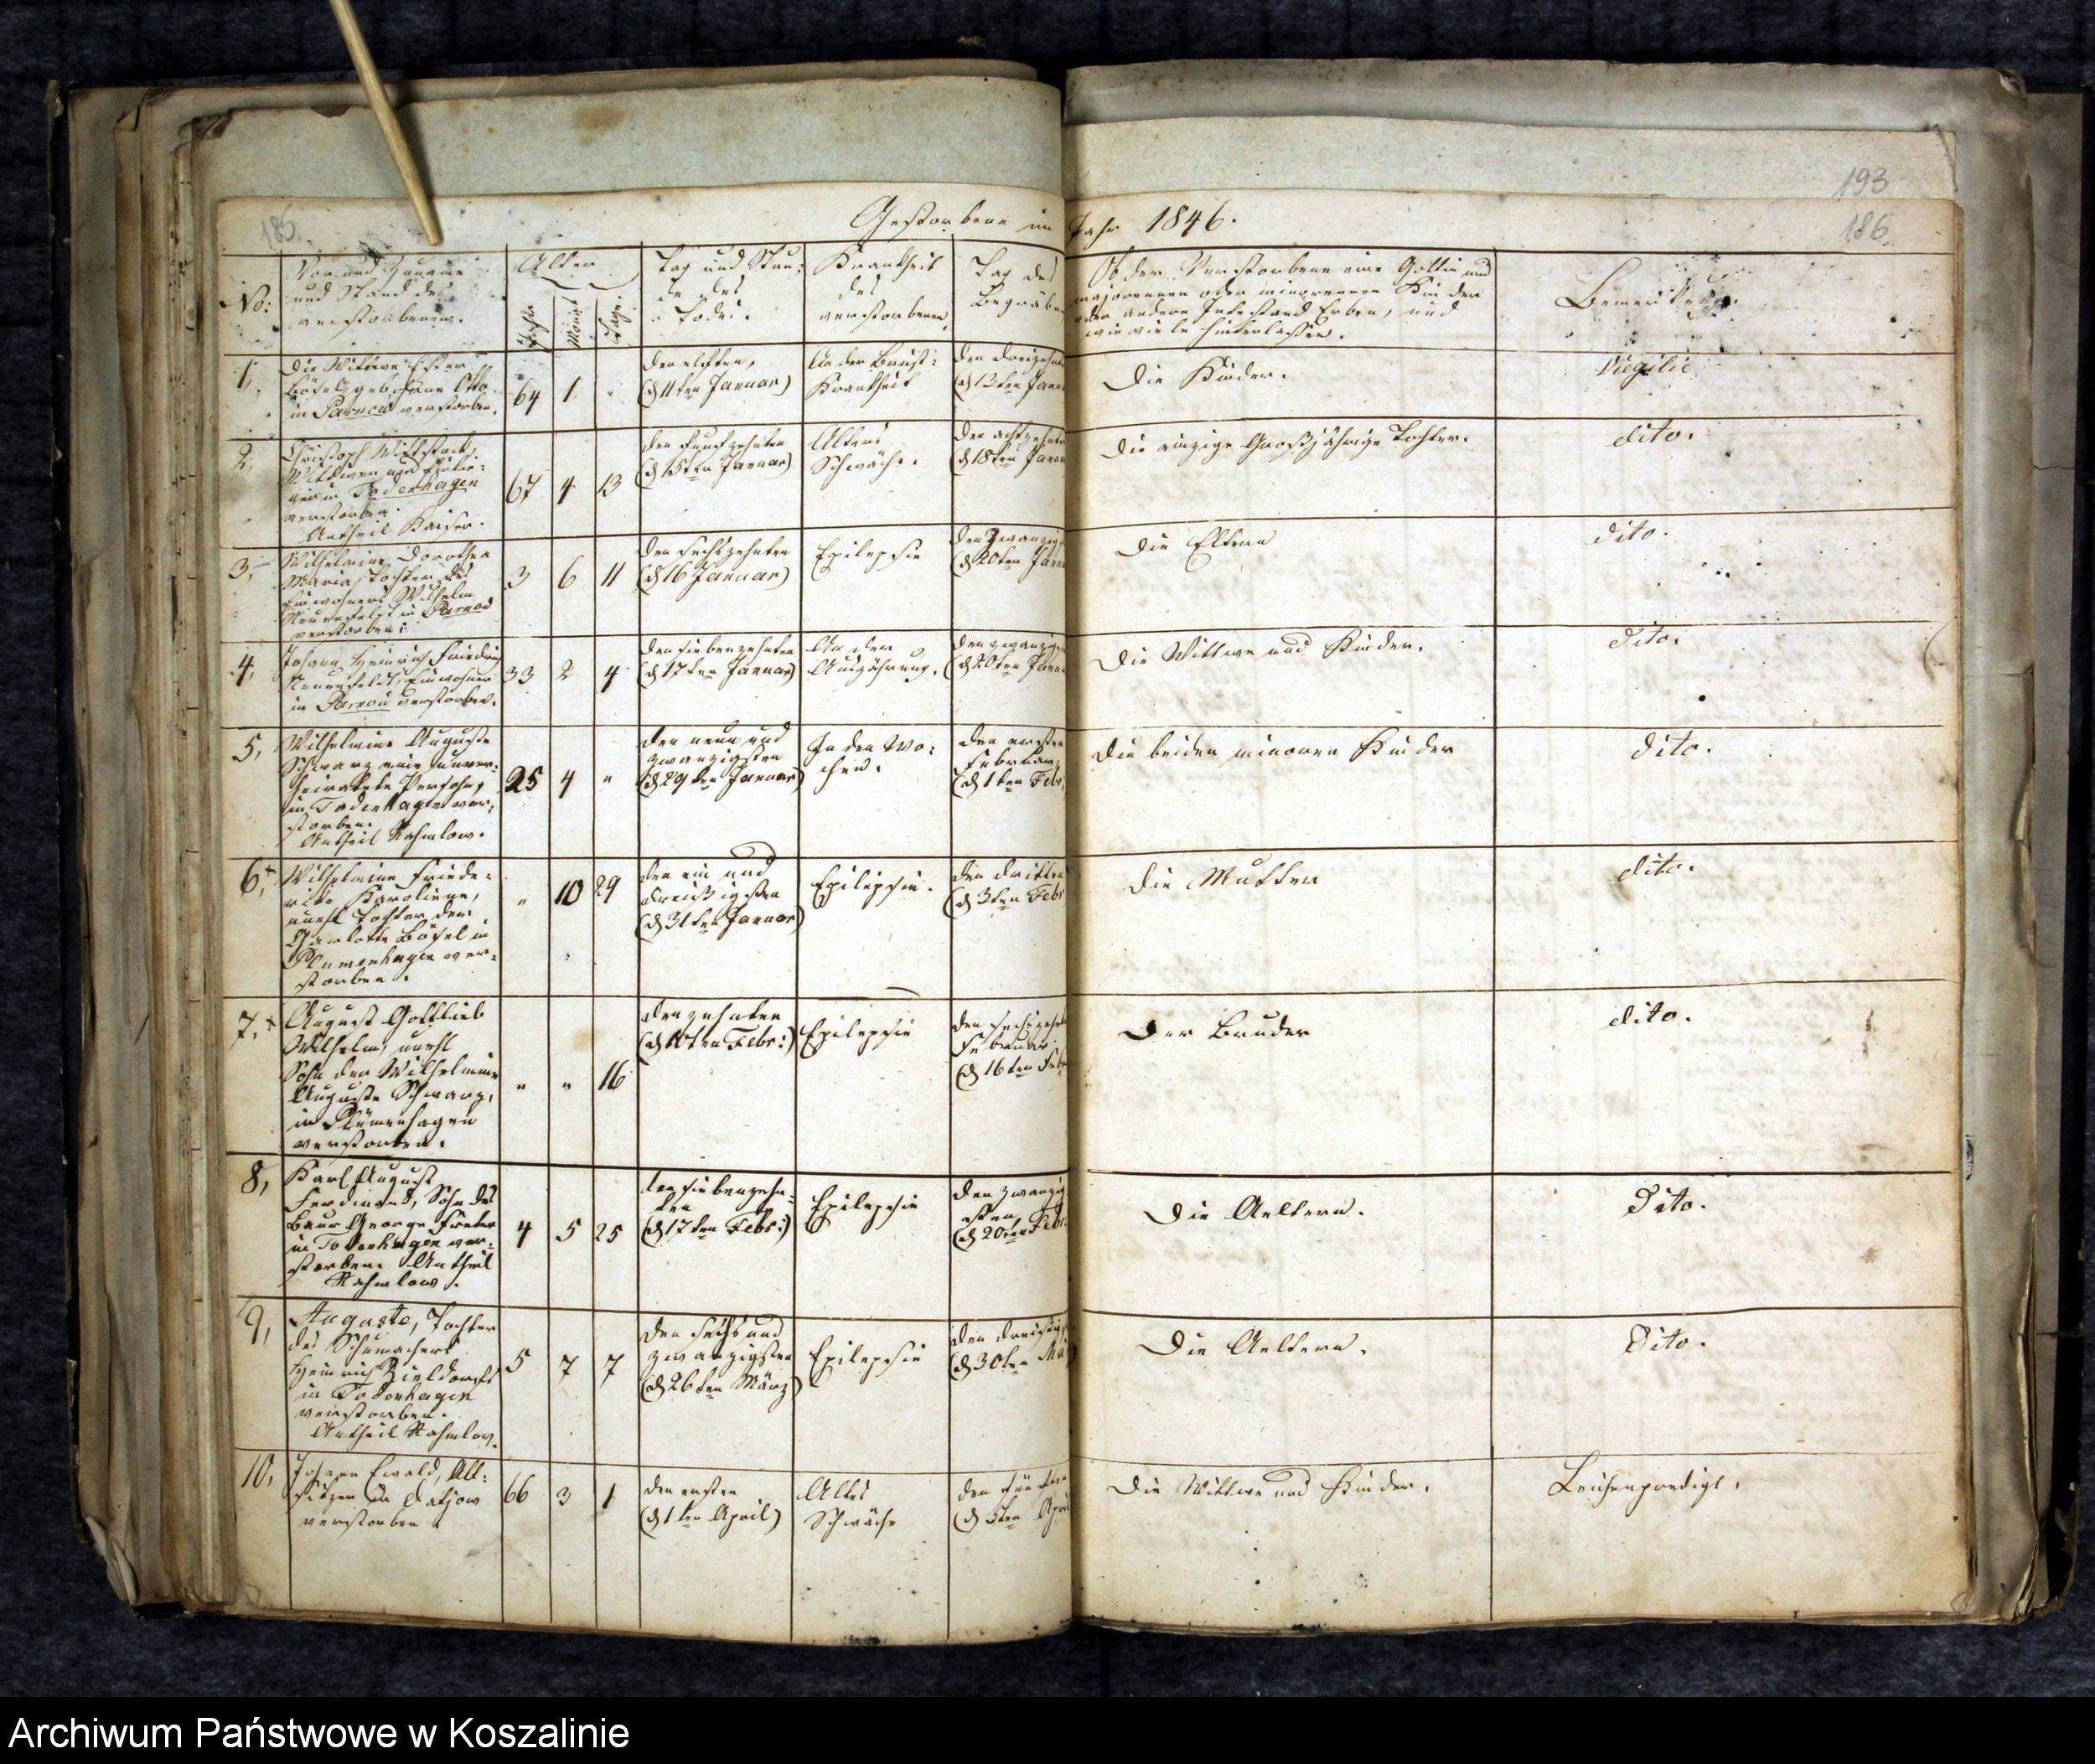 193
185.
186.
Gestorbene im Jahr 1846.
No:
Vor und Zuname
und Stand des
verstorbenen.
Alter
Jahr
Monat
Tage
Tag und Stun:
de des
Todes.
Krankheit
des
verstorbenen
Tag des
Begräb
Ob der Verstorbene eine Gattin und
majorennen oder minorennen Kinder
oder andere Intestand Erben, und
wie viele hinterlassen.
Bemerkung.
1,
Die Wittwe
geborene Otto
in Parnow verstorben.
64
1
den elften,
(d 11ten Januar)
An der Brust:
Krankheit
den dreizehnt
(d 13ten Janu
Die Kinder.
Viegilie
2,
Christoph Wittstock,
Wittwer und
in Todenhagen
verstorben.
Antheil Kaiser.
67
4
13
den funfzehnten
(d 15ten Januar)
Alters
Schwäche.
den achtzehnte
(d 18ten Janu
Die einzige Großjährige Tochter.
dito.
3,
Wilhelmine Dorothea
Maria, Tochter des
Einwohners Wilhelm
in Parnow
verstorben.
3
6
11
den sechszehnten
(d 16 Januar)
Epilepsie
den Zwanzig
(d 20ten Janu
Die Eltern
dito.
4,
Johann Heinrich Friedrich
Einwohner
in Parnow verstorben.
33
2
4
den siebenzehnten
(d 17ten Januar)
An der
Auszährung.
den zwanzig
(d 20ten Janu
Die Wittwe und Kinder.
dito.
5,
Wilhelmine Auguste
Schwarz eine unver:
heirathete Person,
in Todenhagen ver:
storben.
Antheil Rahmlow.
25
4
"
den neun und
zwanzigsten
(d 29ten Januar)
In den Wo:
chen.
den ersten
Februar,
(d 1ten Febr
Die beiden minoren Kinder
dito.
6,+
Wilhelmine Friede:
rike Karoline,
unehl Tochter der
Charlotte Bösel in
Plümenhagen ver:
storben.
"
10
29
den ein und
dreißigsten
(d 31ten Januar)
Epilepsie.
den dritten
(d 3ten Febr
Die Mutter
dito.
7,+
August Gottlieb
Wilhelm, unehl
Sohn der Wilhelmine
Auguste Schwarz,
in Plümenhagen
verstorben.
"
"
16
den zehnten
(d 10ten Febr:)
Epilepsie
den sechszehnt
Februar.
(d 16ten Febr
Der Bruder
dito.
8,
Karl August
Ferdinand, Sohn des
Baur George
in Todenhagen ver:
storben. Antheil
Rahmlow.
4
5
25
den siebenzehn:
ten
(d 17ten Febr:)
Epilepsie
den zwanzig
sten,
(d 20ten Febr.
Die Aeltern.
Dito.
9,
Auguste, Tochter
des Schumachers
Heinrich Zieldorff
in Todenhagen
verstorben.
Antheil Rahmlow.
5
7
7
den sechs und
zwanzigsten
(d 26ten März)
Epilepsie
den dreißig
(d 30ten Mä
Die Aeltern.
Dito.
10,
Johann Ewald, Alt:
sitzer in Datjow
verstorben
66
3
1
den ersten
(d 1ten April)
Alters
Schwäche
den fünften
(d 5ten Apri
Die Wittwe und Kinder.
Leichenpredigt.
Archiwum Państwowe w Koszalinie